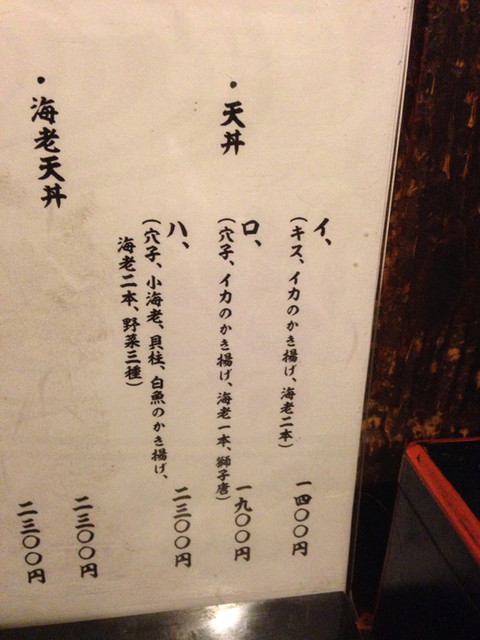 ・天丼
イ、
(キス、イカのかき揚げ、海老二本)
一四〇〇円
ロ、
(穴子、イカのかき揚げ、海老一本、獅子唐)
一九〇〇円
ハ、
(穴子、小海老、貝柱、白魚のかき揚げ、
海老二本、野菜三種)
二三〇〇円
・海老天丼
二三〇〇円
二三〇〇円